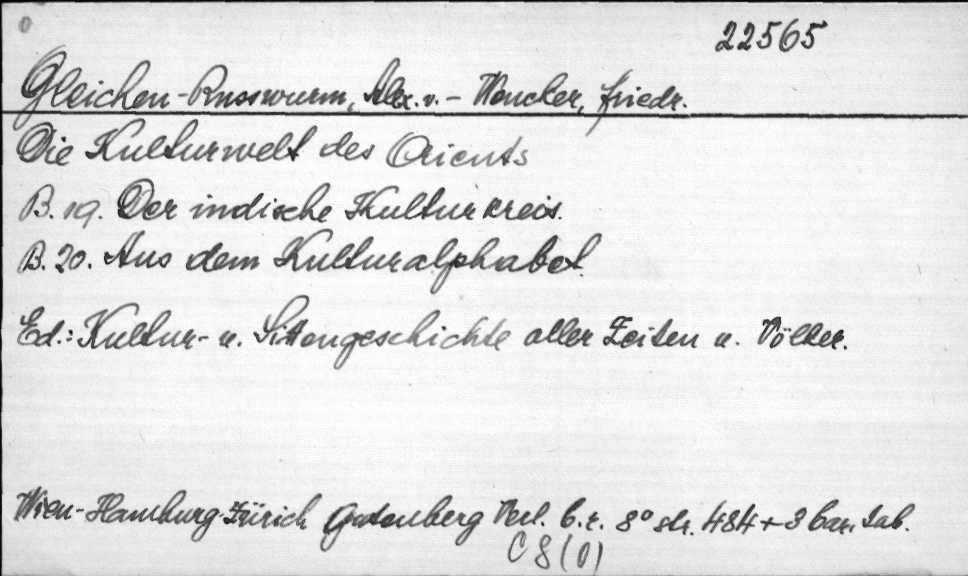 22565
Gleichen-Russwurm, Alex. v. - Wencker, Friedr.
Die Kulturwelt des Orients
B. 19. Der indische Kulturkreis.
B. 20. Aus dem Kulturalphabet
Ed.: Kultur- u. Sittengeschichte aller Zeiten u. Völker.
Wien-Hamburg-Zürich Gutenberg Verl. b. r. 8° str. 484 + 3 bar. tab.
C 8 (0)